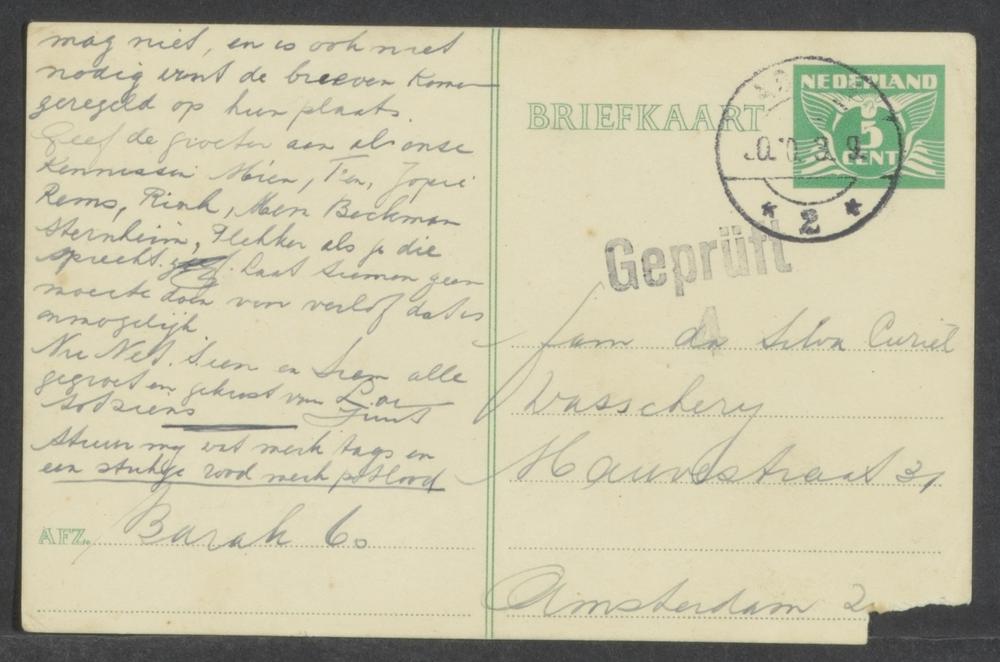 mag niet, en is ook niet
nodig want de brieven komen
geregeld op hun plaats.
Geef de groeten aan al onze
Kennissen Mien, Fen, Jopie
Rems, Rink, Mevr Beekman
Sternheim, Plekker als je die
spreekt. Laat Siemon geen
moeite doen voor verlof dat is
onmogelijk
Nu Nel. Sien en Siem alle
gegroet en gekust van
totsiens
stuur my wat merk tags en
een stukje rood merk potlood
AFZ. Barak 60
BRIEFKAART
NEDERLAND
5
CENT
2
Geprüft
4
Fam da Silva Curiel
Wasschery
Mauvestraat 31
Amsterdam Z